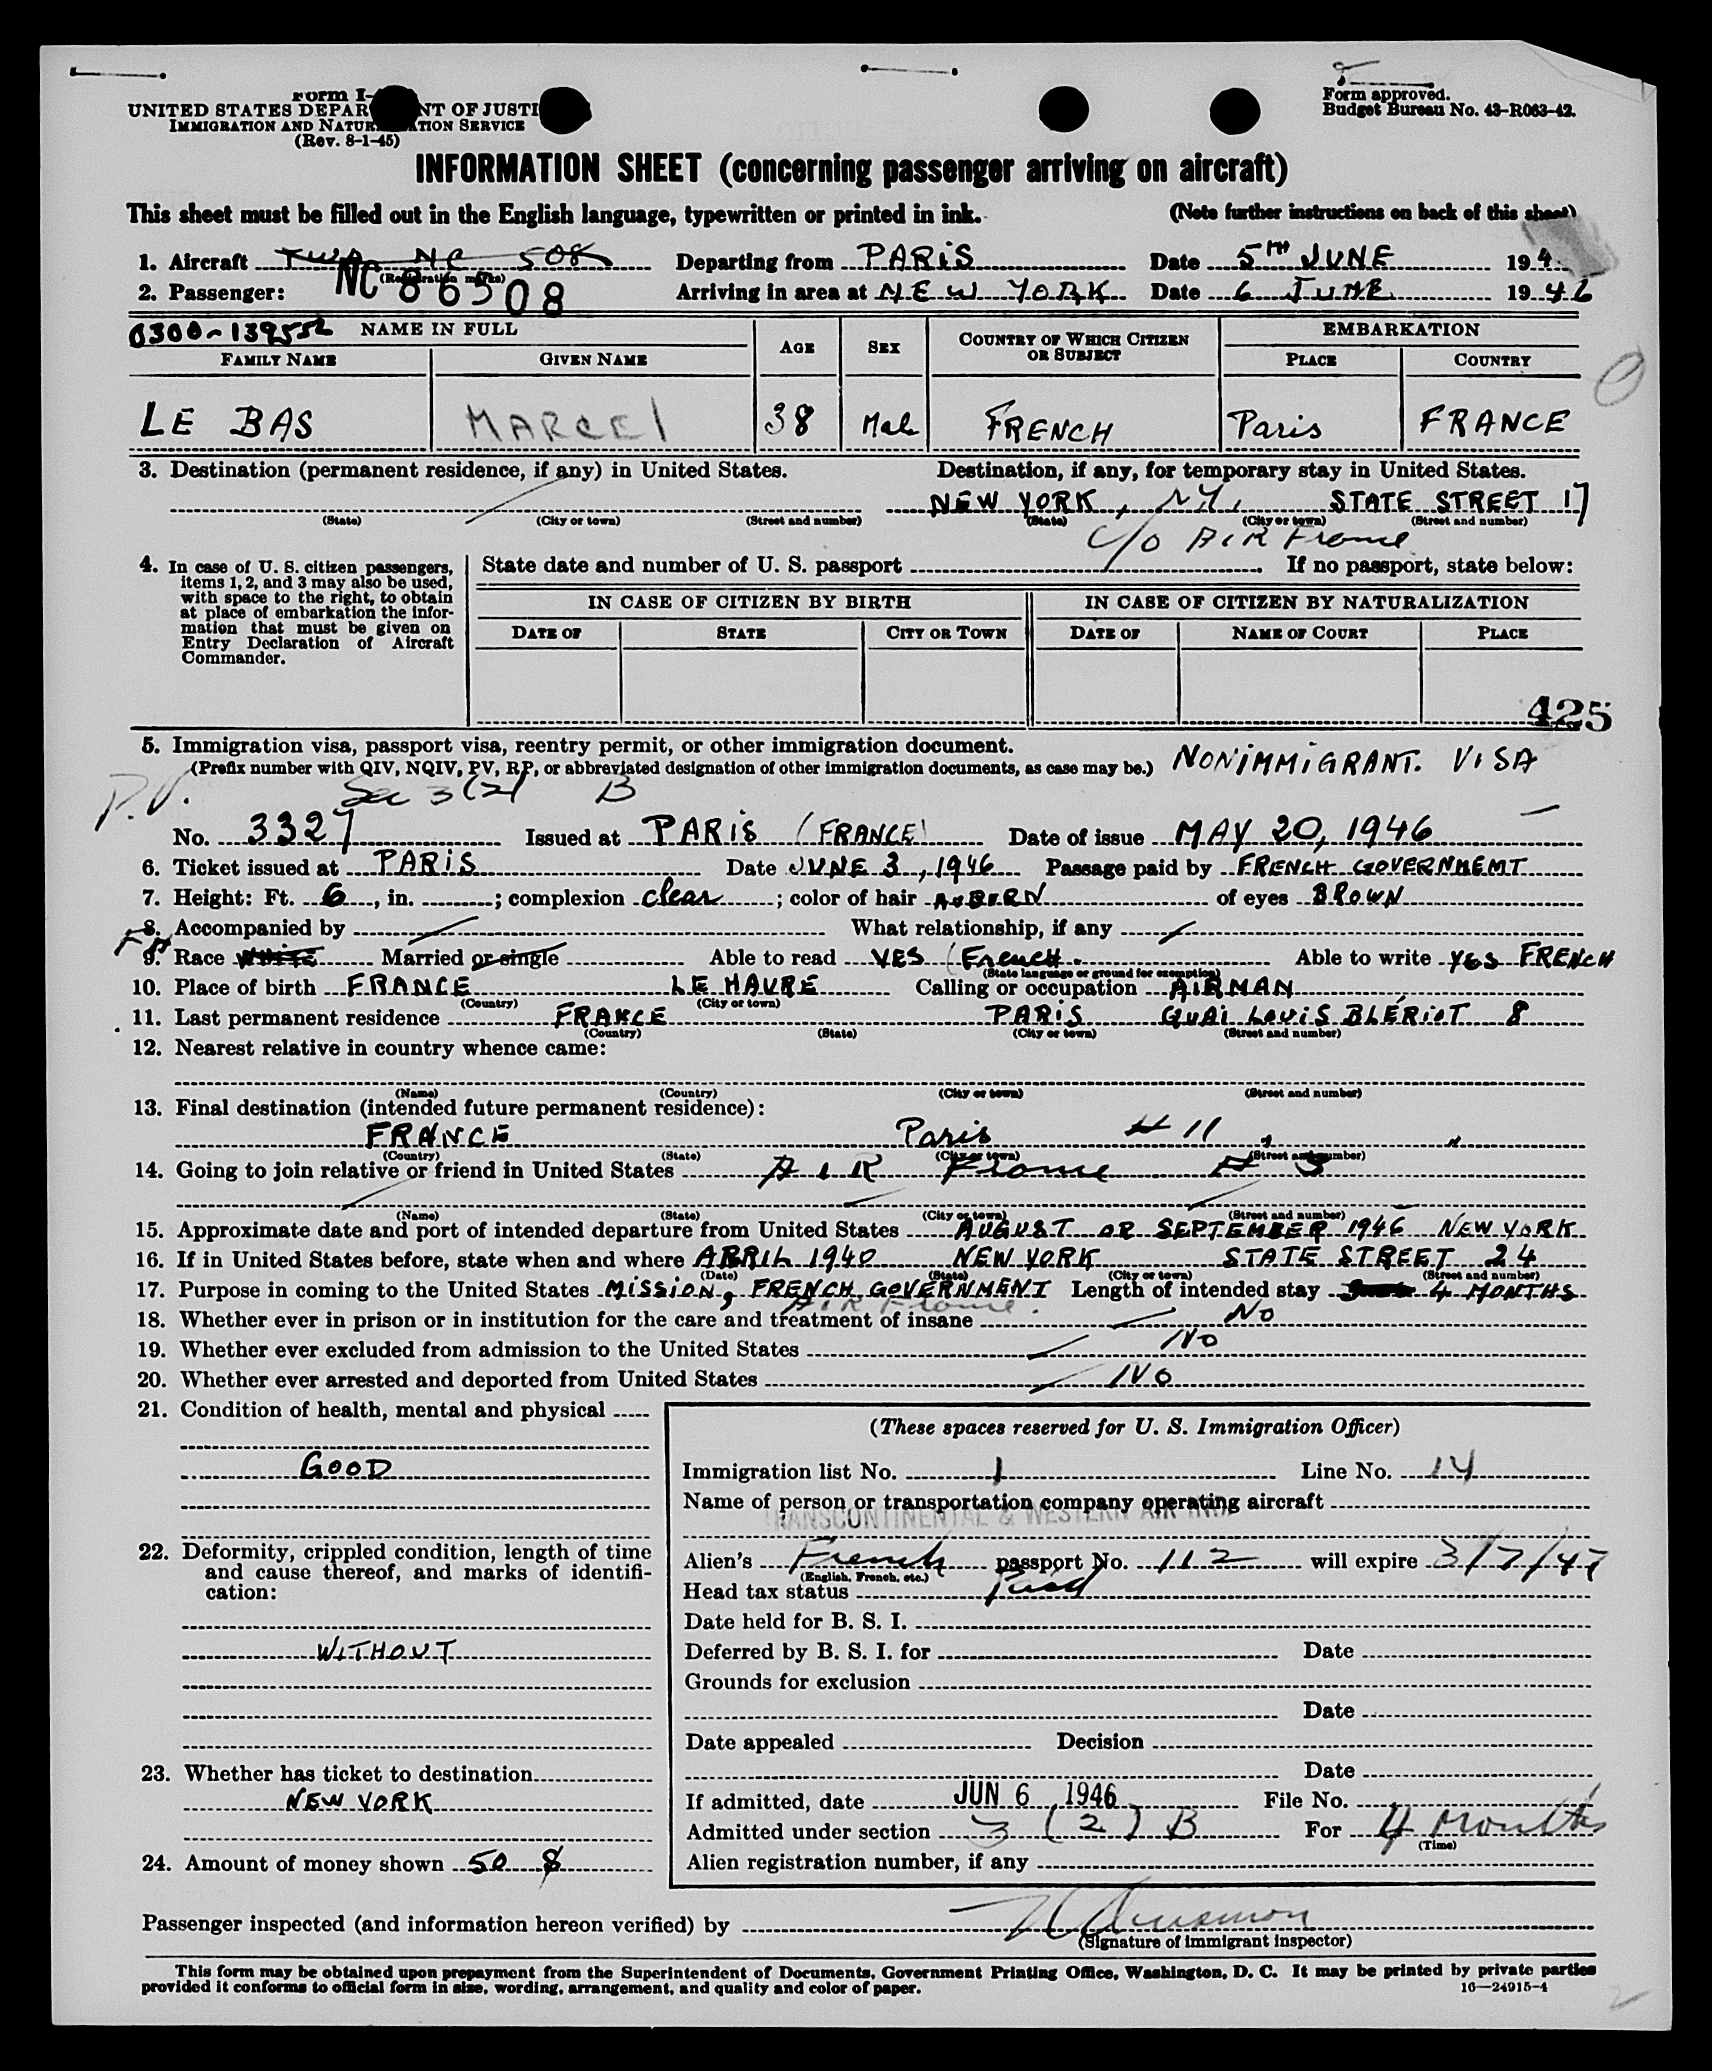 Form I-
UNITED STATES DEPAR NT OF JUSTI
IMMIGRATION AND NATUR TION SERVICE
(Rev. 8-1-45)
Form approved.
Budget Bureau No. 43-R063-42.
INFORMATION SHEET (concerning passenger arriving on aircraft)
This sheet must be filled out in the English language, typewritten or printed in ink. (Note further instructions on back of this sheet)
1. Aircraft TWA NC 508 Departing from PARIS Date 5TH JUNE 194
(Registration marks)
2. Passenger: NC 86508 Arriving in area at NEW YORK Date 6 JUNE 1946
0300-139552 NAME IN FULL AGE SEX COUNTRY OF WHICH CITIZEN OR SUBJECT EMBARKATION
FAMILY NAME GIVEN NAME PLACE COUNTRY
LE BAS MARCEl 38 Male FRENCH Paris FRANCE
3. Destination (permanent residence, if any) in United States. Destination, if any, for temporary stay in United States.
NEW YORK, N.Y, STATE STREET 17
(State) (City or town) (Street and number) (State) (City or town) (Street and number)
C/O AIR France
4. In case of U. S. citizen passengers, items 1, 2, and 3 may also be used, with space to the right, to obtain at place of embarkation the information that must be given on Entry Declaration of Aircraft Commander.
State date and number of U. S. passport If no passport, state below:
IN CASE OF CITIZEN BY BIRTH IN CASE OF CITIZEN BY NATURALIZATION
DATE OF STATE CITY OR TOWN DATE OF NAME OF COURT PLACE
425
5. Immigration visa, passport visa, reentry permit, or other immigration document.
(Prefix number with QIV, NQIV, PV, RP, or abbreviated designation of other immigration documents, as case may be.) NONIMMIGRANT. VISA
P.V. Sec 3(2) B
No. 3327 Issued at PARIS (FRANCE) Date of issue MAY 20, 1946
6. Ticket issued at PARIS Date JUNE 3, 1946 Passage paid by FRENCH GOVERNMEMT
7. Height: Ft. 6, in. ; complexion clear; color of hair AUBERN of eyes BROWN
8. Accompanied by What relationship, if any
FH
9. Race WHITE Married or single Able to read YES (French. Able to write YES FRENCH
(State language or ground for exemption)
10. Place of birth FRANCE LE HAVRE Calling or occupation AIRMAN
(Country) (City or town)
11. Last permanent residence FRANCE PARIS QUAI LOUIS BLÉRIOT 8
(Country) (State) (City or town) (Street and number)
12. Nearest relative in country whence came:
(Name) (Country) (City or town) (Street and number)
13. Final destination (intended future permanent residence):
FRANCE Paris # 11 " "
(Country) (State) (City or town) (Street and number)
14. Going to join relative or friend in United States AIR France # 3
(Name) (State) (City or town) (Street and number)
15. Approximate date and port of intended departure from United States AUGUST OR SEPTEMBER 1946 NEW YORK
16. If in United States before, state when and where APRIL 1940 NEW YORK STATE STREET 24
(Date) (State) (City or town) (Street and number)
17. Purpose in coming to the United States MISSION, FRENCH GOVERNMENT Length of intended stay 4 MONTHS
AIR France.
18. Whether ever in prison or in institution for the care and treatment of insane NO
19. Whether ever excluded from admission to the United States NO
20. Whether ever arrested and deported from United States NO
21. Condition of health, mental and physical
GOOD
22. Deformity, crippled condition, length of time and cause thereof, and marks of identification:
WITHOUT
23. Whether has ticket to destination
NEW YORK
24. Amount of money shown 50 $
(These spaces reserved for U. S. Immigration Officer)
Immigration list No. 1 Line No. 14
Name of person or transportation company operating aircraft
TRANSCONTINENTAL & WESTERN AIR INC.
Alien's French passport No. 112 will expire 3/7/47
(English, French, etc.)
Head tax status Paid
Date held for B. S. I.
Deferred by B. S. I. for Date
Grounds for exclusion
Date
Date appealed Decision
Date
If admitted, date JUN 6 1946 File No.
Admitted under section 3 (2) B For 4 Months
(Time)
Alien registration number, if any
Passenger inspected (and information hereon verified) by
(Signature of immigrant inspector)
This form may be obtained upon prepayment from the Superintendent of Documents, Government Printing Office, Washington, D. C. It may be printed by private parties
provided it conforms to official form in size, wording, arrangement, and quality and color of paper. 16—24915-4